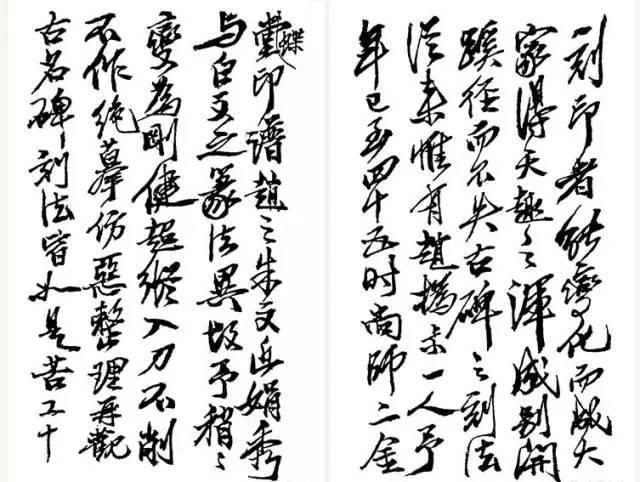 刻印者能變化而成大
家得天趣之渾成別開
蹊徑而不失古碑之刻法
從來惟有趙撝叔一人予
年已至四十五时尚師二金
蝶堂印譜趙之朱文近娟秀
与白文之篆法異故予稍〻
變為剛健超縱入刀不削
不作絕摹仿惡整理再觀
古名碑刻法皆如是苦工十